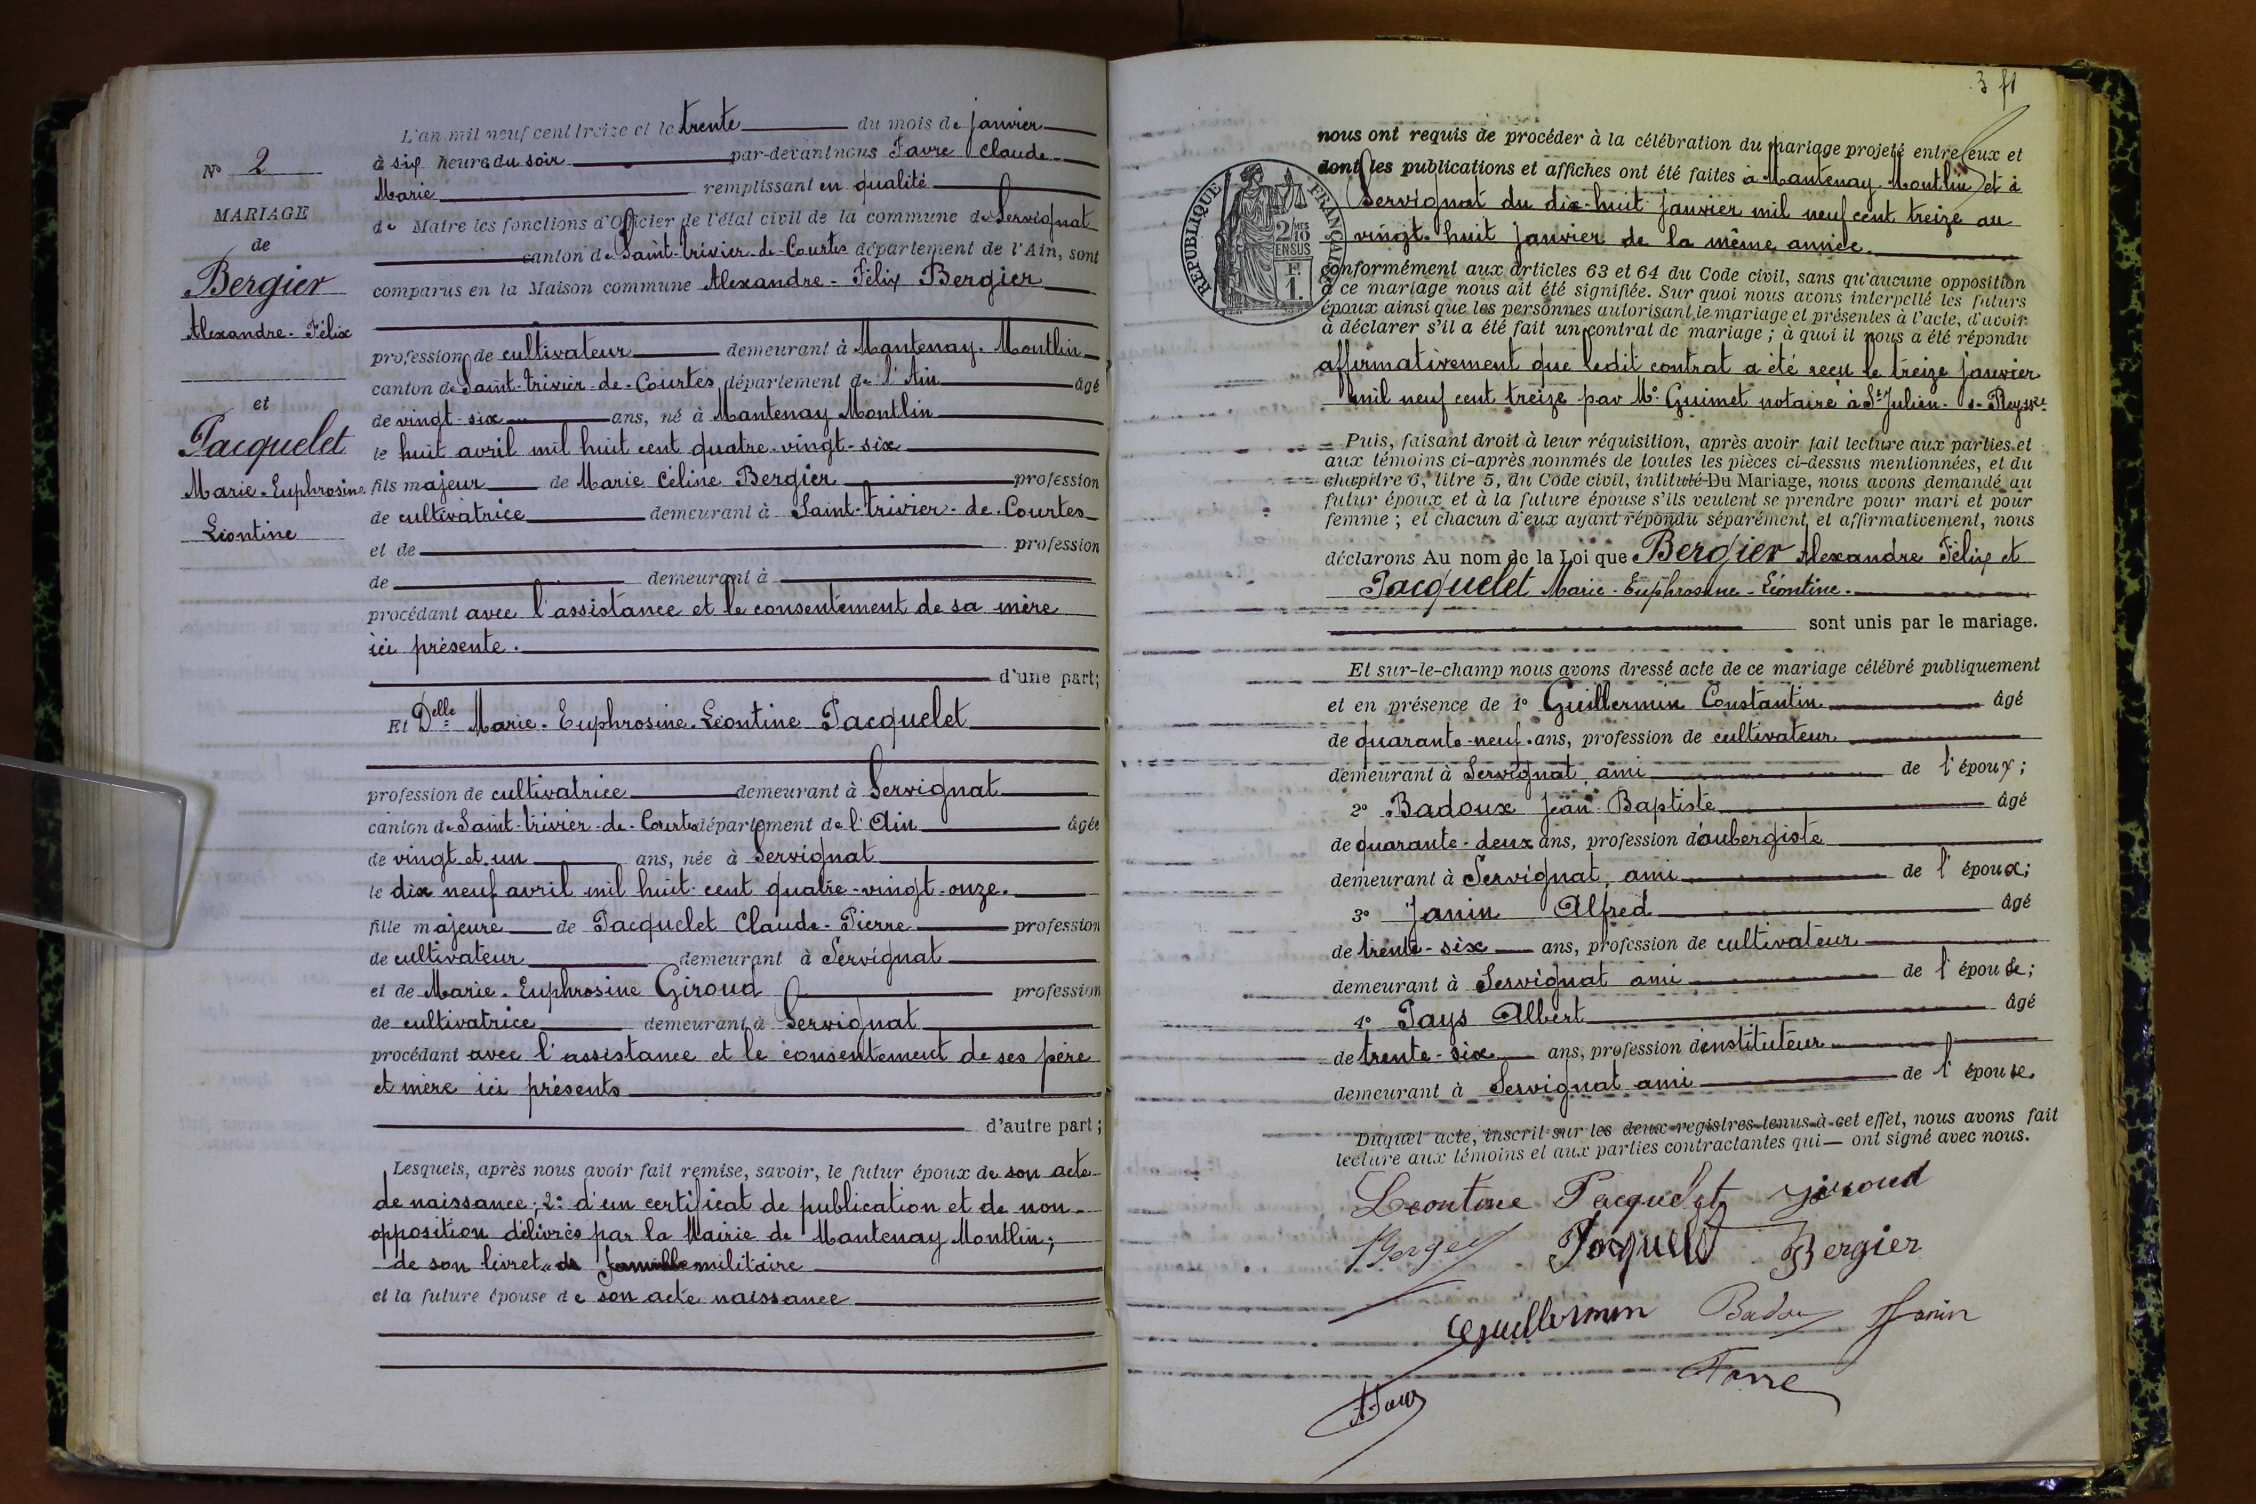 N° 2
MARIAGE
de
Bergier
Alexandre-Félix
et
Pacquelet
Marie-Euphrosine
Léontine
L'an mil neuf cent treize et le trente du mois de janvier
à six heures du soir par-devant nous Favre Claude
Marie remplissant en qualité
de Maire les fonctions d'Officier de l'état civil de la commune de Servignat
canton de Saint-trivier-de-Courtes département de l'Ain, sont
comparus en la Maison commune Alexandre-Félix Bergier
profession de cultivateur demeurant à Mantenay-Montlin
canton de Saint-trivier-de-Courtes département de l'Ain âgé
de vingt-six ans, né à Mantenay Montlin
le huit avril mil huit cent quatre-vingt-six
fils majeur de Marie Céline Bergier profession
de cultivatrice demeurant à Saint-trivier-de-Courtes
et de profession
de demeurant à
procédant avec l'assistance et le consentement de sa mère
ici présente.
d'une part;
Et Delle Marie-Euphrosine-Léontine Pacquelet
profession de cultivatrice demeurant à Servignat
canton de Saint-trivier-de-Courtes département de l'Ain âgée
de vingt et un ans, née à Servignat
le dix neuf avril mil huit-cent quatre-vingt-onze.
fille majeure de Pacquelet Claude-Pierre profession
de cultivateur demeurant à Servignat
et de Marie-Euphrosine Giroud profession
de cultivatrice demeurant à Servignat
procédant avec l'assistance et le consentement de ses père
et mère ici présents
d'autre part;
Lesquels, après nous avoir fait remise, savoir, le futur époux de son acte
de naissance; 2° d'un certificat de publication et de non-
opposition délivrés par la Mairie de Mantenay Montlin;
de son livret de famille militaire
et la future épouse de son acte naissance
3 f1
nous ont requis de procéder à la célébration du mariage projeté entre eux et
dont les publications et affiches ont été faites à Mantenay-Montlin et à
Servignat du dix-huit janvier mil neuf cent treize au
vingt-huit janvier de la même année.
RÉPUBLIQUE FRANÇAISE
2/10 MES
EN SUS
1 F.
conformément aux articles 63 et 64 du Code civil, sans qu'aucune opposition
à ce mariage nous ait été signifiée. Sur quoi nous avons interpellé les futurs
époux ainsi que les personnes autorisant le mariage et présentes à l'acte, d'avoir
à déclarer s'il a été fait un contrat de mariage; à quoi il nous a été répondu
affirmativement que ledit contrat a été reçu le treize janvier
mil neuf cent treize par Me Guimet notaire à St Julien-s-Reyssze
Puis, faisant droit à leur réquisition, après avoir fait lecture aux parties et
aux témoins ci-après nommés de toutes les pièces ci-dessus mentionnées, et du
chapitre 6, titre 5, du Code civil, intitulé Du Mariage, nous avons demandé au
futur époux et à la future épouse s'ils veulent se prendre pour mari et pour
femme; et chacun d'eux ayant répondu séparément et affirmativement, nous
déclarons Au nom de la Loi que Bergier Alexandre Félix et
Pacquelet Marie-Euphrosine-Léontine.
sont unis par le mariage.
Et sur-le-champ nous avons dressé acte de ce mariage célébré publiquement
et en présence de 1° Guillermin Constantin âgé
de quarante-neuf ans, profession de cultivateur
demeurant à Servignat ami de l'époux;
2° Badoux Jean-Baptiste âgé
de quarante-deux ans, profession d'aubergiste
demeurant à Servignat, ami de l'époux;
3° Janin Alfred âgé
de trente-six ans, profession de cultivateur
demeurant à Servignat ami de l'épouse;
4° Pays Albert âgé
de trente-six ans, profession d'instituteur
demeurant à Servignat ami de l'épouse.
Duquel acte, inscrit sur les deux registres tenus à cet effet, nous avons fait
lecture aux témoins et aux parties contractantes qui ont signé avec nous.
Leontine Pacquelet Giroud
Bergier Pacquelet Bergier
Guillermin Badoux Janin
Favre
APays